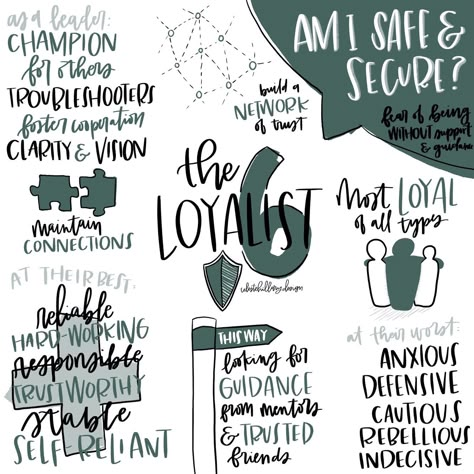 as a leader:
CHAMPION
for others
TROUBLESHOOTERS
foster cooperation
CLARITY & VISION
build a
NETWORK
of trust
AM I SAFE &
SECURE?
fear of being
WITHOUT support
& guidance
the
LOYALIST
6
maintain
CONNECTIONS
Most LOYAL
of all types
AT THEIR BEST:
reliable
HARD-WORKING
responsible
TRUSTWORTHY
stable
SELF-RELIANT
THIS WAY
looking for
GUIDANCE
from mentors
& TRUSTED
friends
at their worst:
ANXIOUS
DEFENSIVE
CAUTIOUS
REBELLIOUS
INDECISIVE